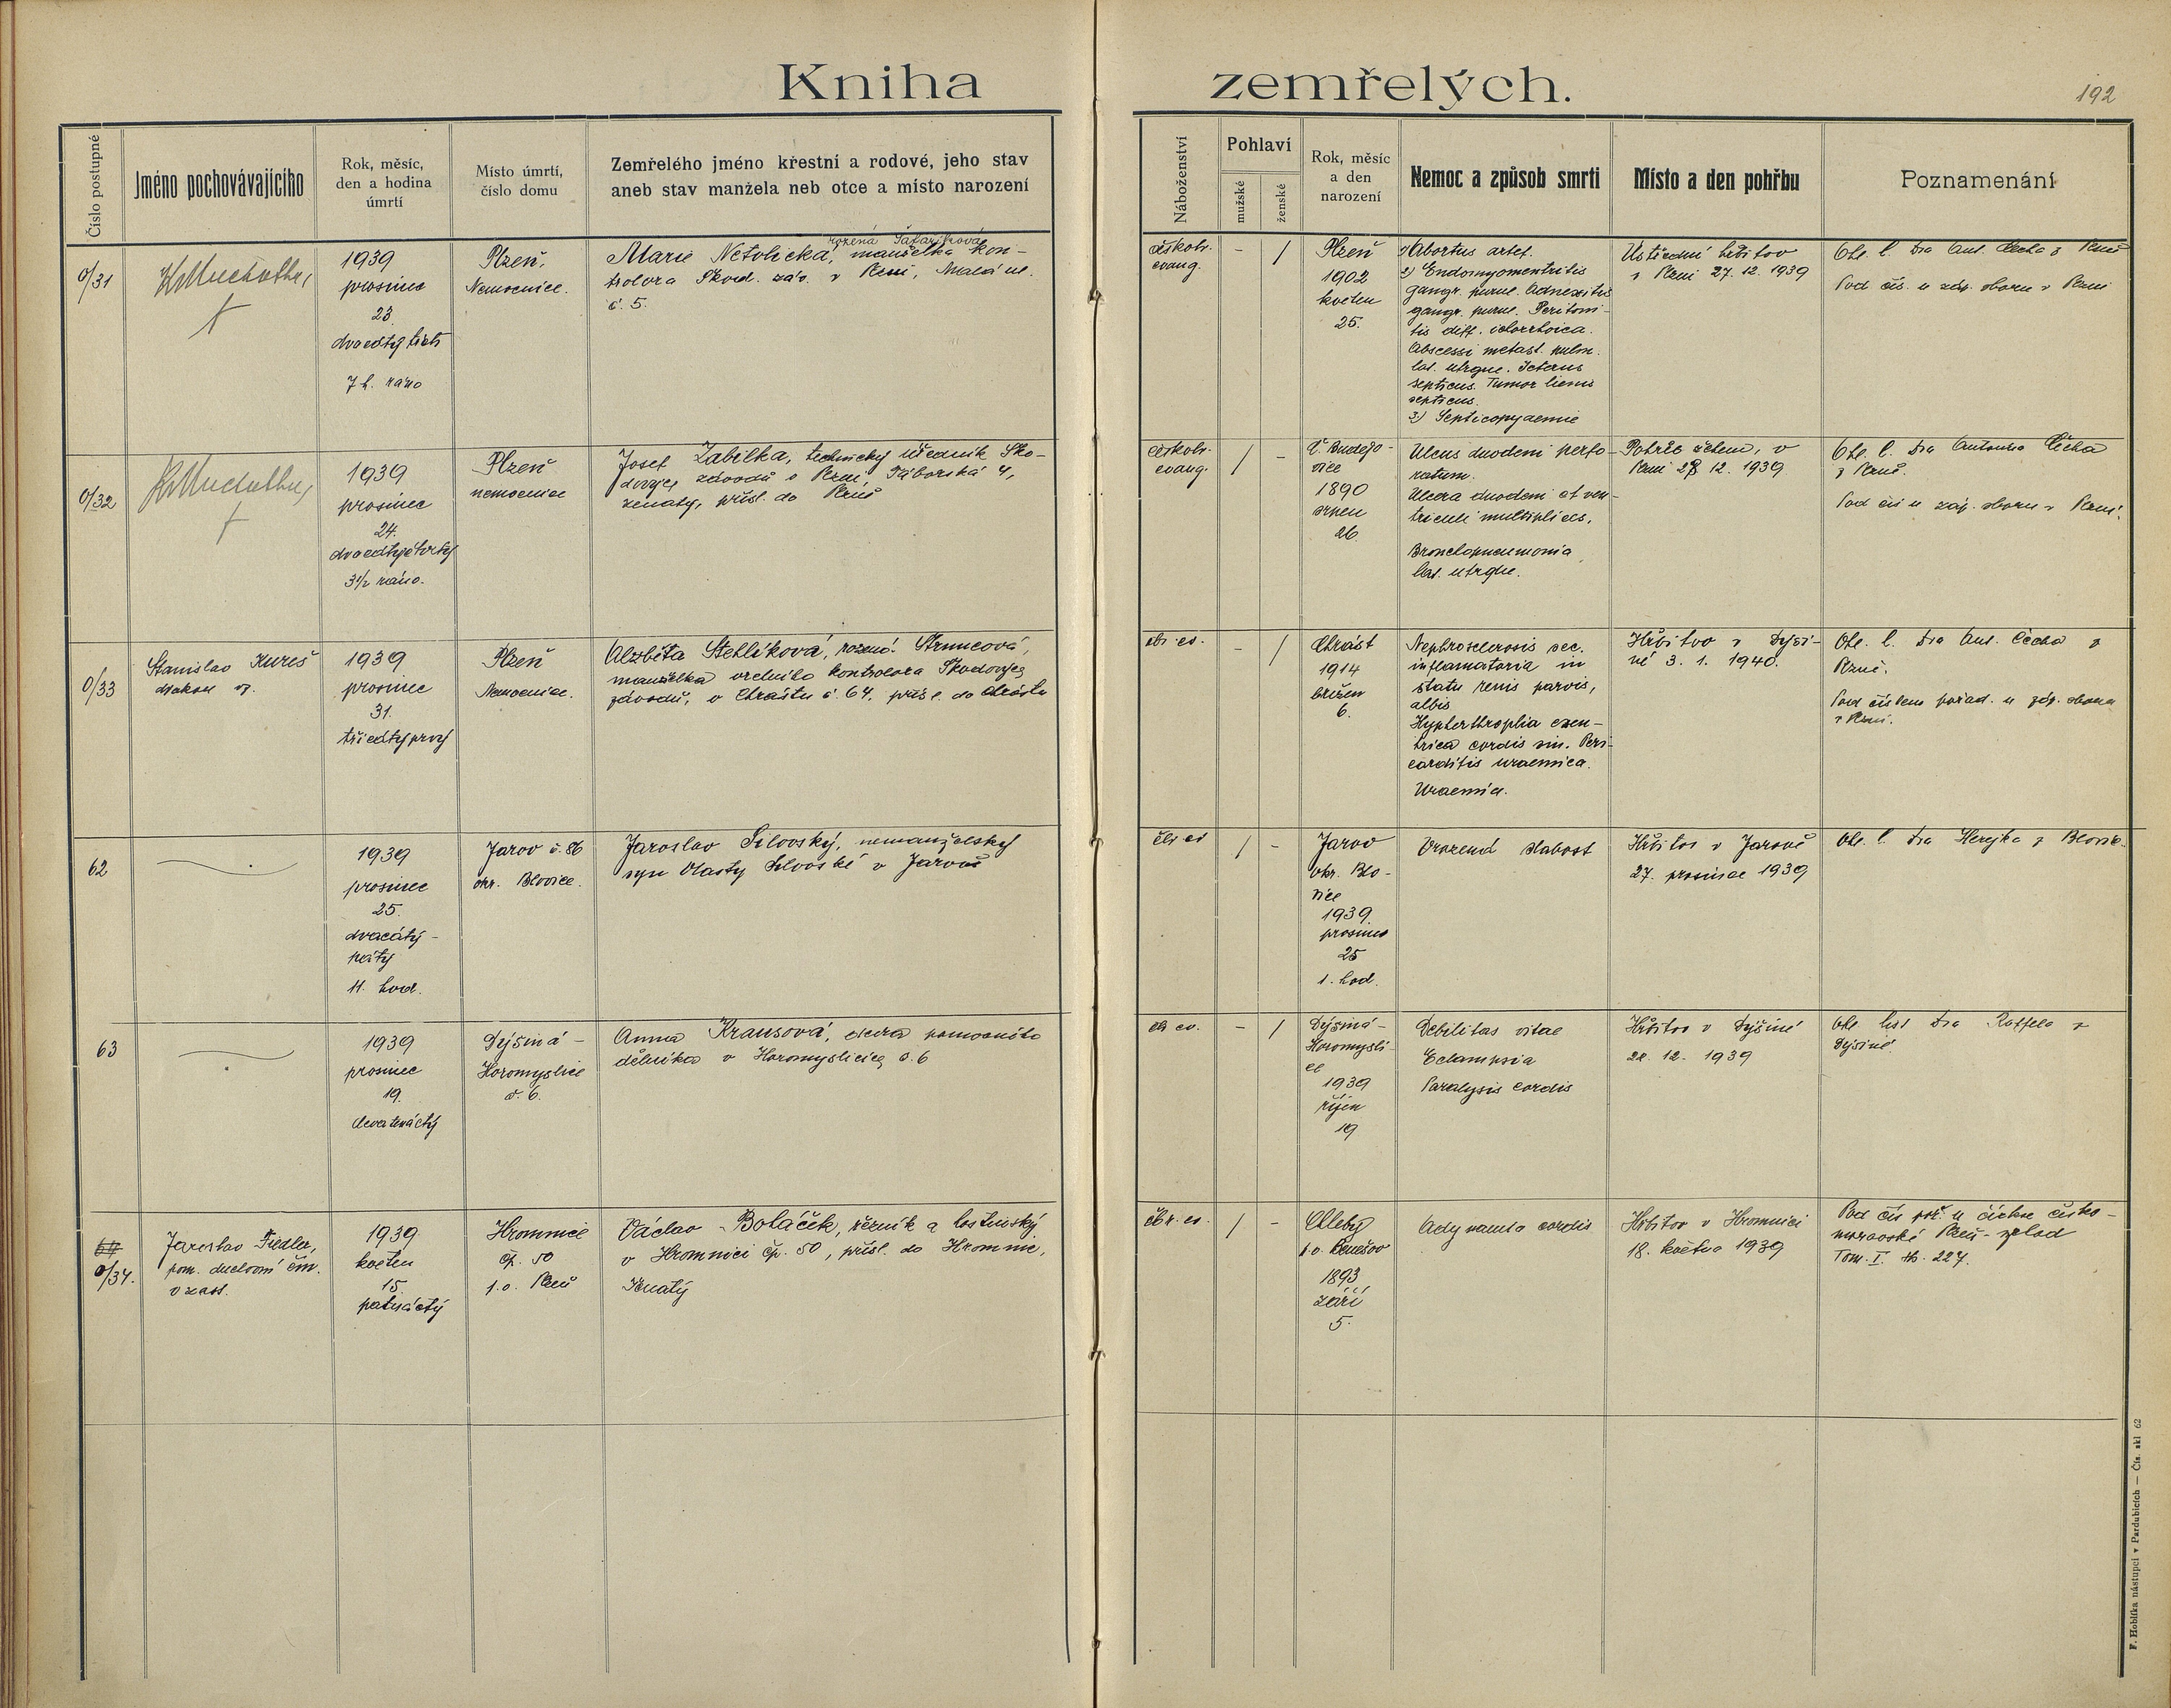 Kniha zemřelých.
192
Číslo postupné
Jméno pochovávajícího
Rok, měsíc,
den a hodina
úmrtí
Místo úmrtí,
číslo domu
Zemřelého jméno křestní a rodové, jeho stav
aneb stav manžela neb otce a místo narození
Náboženství
Pohlaví
mužské
ženské
Rok, měsíc
a den
narození
Nemoc a způsob smrti
Místo a den pohřbu
Poznamenání
0/31
1939
prosinec
23
dvacátý třetí
7 h. ráno
Plzeň,
Nemocnice.
rozená Šafaříková
Marie Netolická, manželka kon-
trolora Škod. záv. v Plzni, Malá ul.
č. 5.
českobr.
evang.
-
/
Plzeň
1902
květen
25.
1) Abortus artef.
2) Endomyometritis
gangr. purul. Adnexitis
gangr. purul. Peritoni-
tis diff. ichorrhoica.
Abscessi metast. pulm.
lat. utrque. Icterus
septicus. Tumor lienis
septicus.
3) Septicopyaemie
Ústřední hřbitov
v Plzni 27. 12. 1939
Ohl. l. Dra Ant. Čecha z Plzně
Pod čís. u záp. sboru v Plzni
0/32
1939
prosinec
24.
dvacátýčtvrtý
3 1/2 ráno.
Plzeň
nemocnice
Josef Zabilka, technický úředník Ško-
dových závodů v Plzni, Táborská 4,
ženatý, přísl. do Plzně
českobr.
evang.
/
-
Č. Budějo-
vice
1890
srpen
26
Ulcus duodeni perfo-
ratum.
Ulcera duodeni et ven-
triculi multiplices.
Bronchopneumonia
lat. utrque.
Pohřeb žehem, v
Plzni 28. 12. 1939
Ohl. l. Dra Antonína Čecha
z Plzně.
Pod čís u záp. sboru v Plzni.
0/33
Stanislav Kureš
diakon
1939
prosinec
31.
třicátýprvý
Plzeň
Nemocnice.
Alzběta Stehlíková, rozená Strnucová,
manželka vrchního kontrolora Škodových
závodů, v Chrástu č. 64, přísl. do Chrástu
čbr. ev.
-
/
Chrást
1914
březen
6.
Nephrosclerosis sec.
inflamatoria in
statu renis parvis,
albis
Hypherthroplia exen-
trica cordis sin. Peri-
carditis uraemica.
Uraemia.
Hřbitov v Dýši-
né 3. 1. 1940.
Ohl. l. Dra Ant. Čecha z
Plzně.
Pod číslem pořad. u záp. sboru
v Plzni.
62
1939
prosinec
25.
dvacátý-
pátý
11. hod.
Jarov č. 86
okr. Blovice.
Jaroslav Silovský, nemanželský
syn Vlasty Silovské v Jarově
čbr ev
/
-
Jarov
okr. Blo-
vice
1939
prosinec
25
1. hod.
Vrozená slabost
Hřbitov v Jarově
27. prosince 1939
Ohl. l. Dra Herejka z Blovic.
63
1939
prosinec
19.
devatenáctý
Dýšiná-
Horomyslice
č. 6.
Anna Krausová, dcera pomocného
dělníka v Horomyslicích č. 6
čbr ev.
-
/
Dýšiná-
Horomysli-
ce
1939
říjen
19
Debilitas vitae
Eclampsia
Paralysis cordis
Hřbitov v Dýšiné
21. 12. 1939
Ohl list Dra Raffela v
Dýšiné
64
0/34.
Jaroslav Fiedler,
pom. duchovní čm.
v zast.
1939
květen
15.
patnáctý
Hromnice
čp. 50
p.o. Plzeň
Václav Boháček, řezník a hostinský
v Hromnici čp. 50, přísl. do Hromnic,
ženatý
čbr. ev.
/
-
Chleby
p.o. Benešov
1893
září
5.
Adynamia cordis
Hřbitov v Hromnici
18. května 1939
Pod čís poř. u církve česko-
moravské Plzeň-západ
Tom. I. str. 227.
F. Hoblíka nástupci v Pardubicích — Čís. skl 62